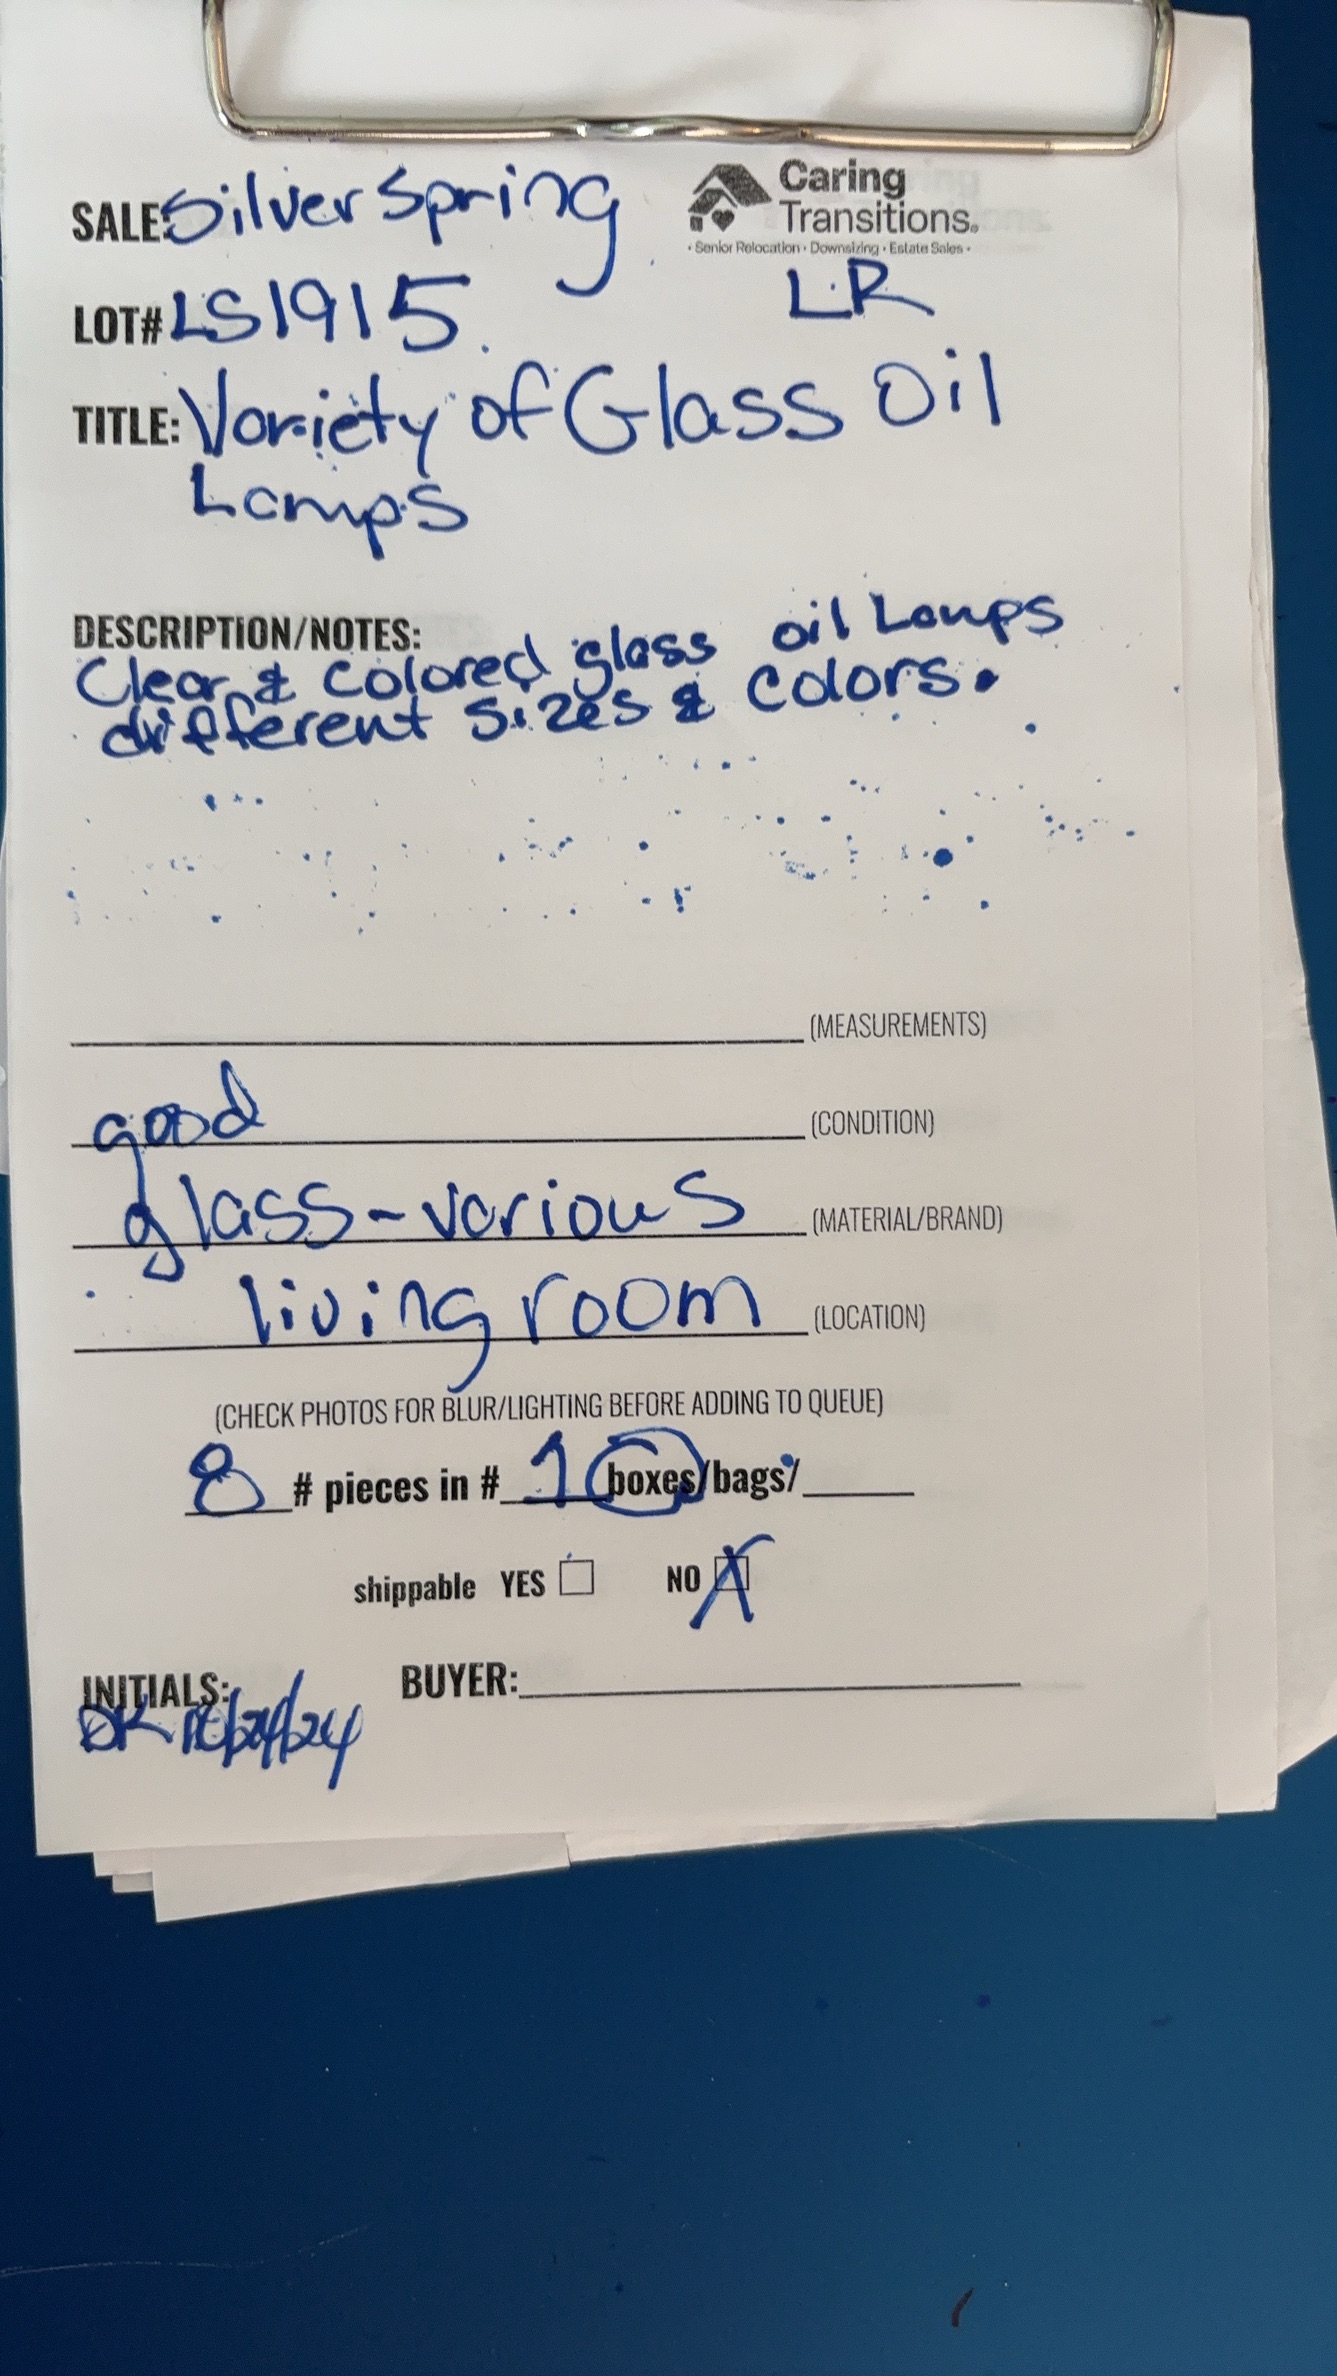 SALE: Silver Spring
Caring
Transitions®
• Senior Relocation • Downsizing • Estate Sales •
LOT# LS1915
LR
TITLE: Variety of Glass Oil
Lamps
DESCRIPTION/NOTES:
Clear & colored glass oil Lamps
different sizes & colors.
(MEASUREMENTS)
good (CONDITION)
glass - various (MATERIAL/BRAND)
living room (LOCATION)
(CHECK PHOTOS FOR BLUR/LIGHTING BEFORE ADDING TO QUEUE)
8 # pieces in # 1 boxes/bags/
shippable YES NO X
INITIALS: BUYER:
DK